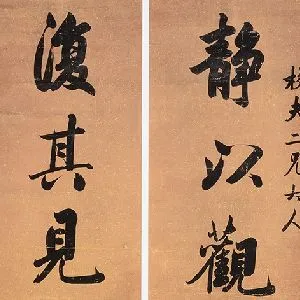 夫二兄大人
靜以觀
復其見